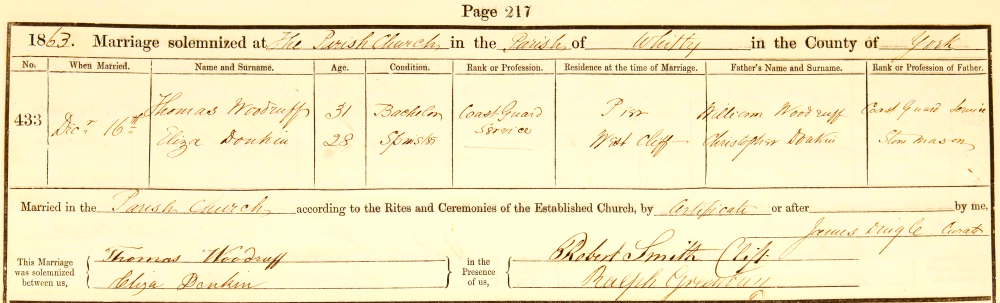 Page 217
1863. Marriage solemnized at The Parish Church in the Parish of Whitby in the County of York
No. When Married. Name and Surname. Age. Condition. Rank or Profession. Residence at the time of Marriage. Father's Name and Surname. Rank or Profession of Father.
433 Decr 16th Thomas Woodruff 31 Bachelor Coast Guard Service Pier William Woodruff Coast Guard Service
Eliza Donkin 28 Spinster West Cliff Christopher Donkin Stone mason
Married in the Parish Church according to the Rites and Ceremonies of the Established Church, by Certificate or after by me,
James Dingle Curate
This Marriage was solemnized between us, Thomas Woodruff in the Presence of us, Robert Smith
Eliza Donkin Ralph